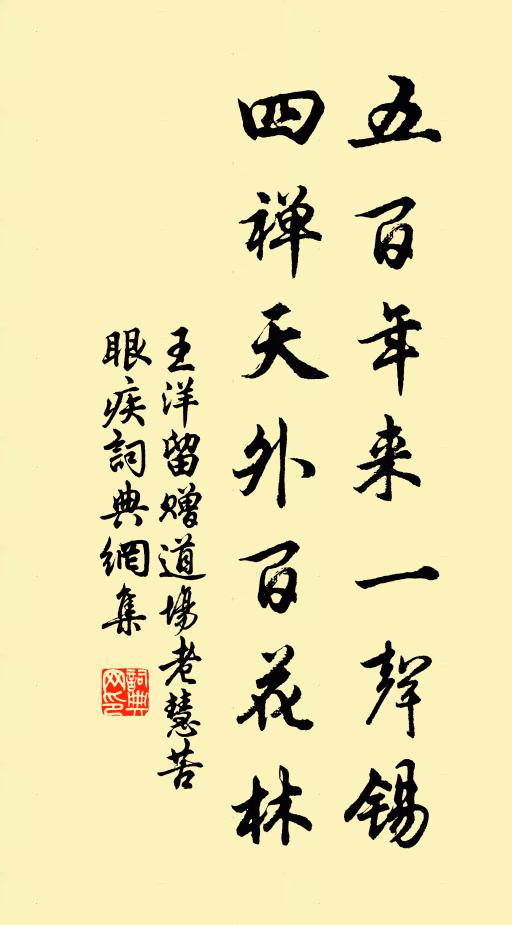 五百年来一聲锡
四禅天外百花林
王洋留赠道場老慧苦
眼疾詞典網集
詞典网印